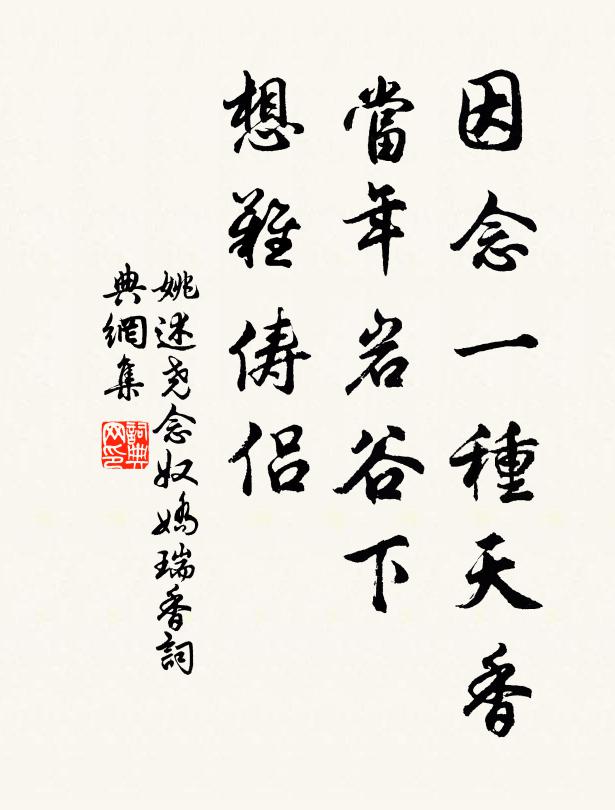 因念一種天香
當年岩谷下
想難俦侶
姚述尧念奴嬌瑞香詞
典網集
詞典
网印